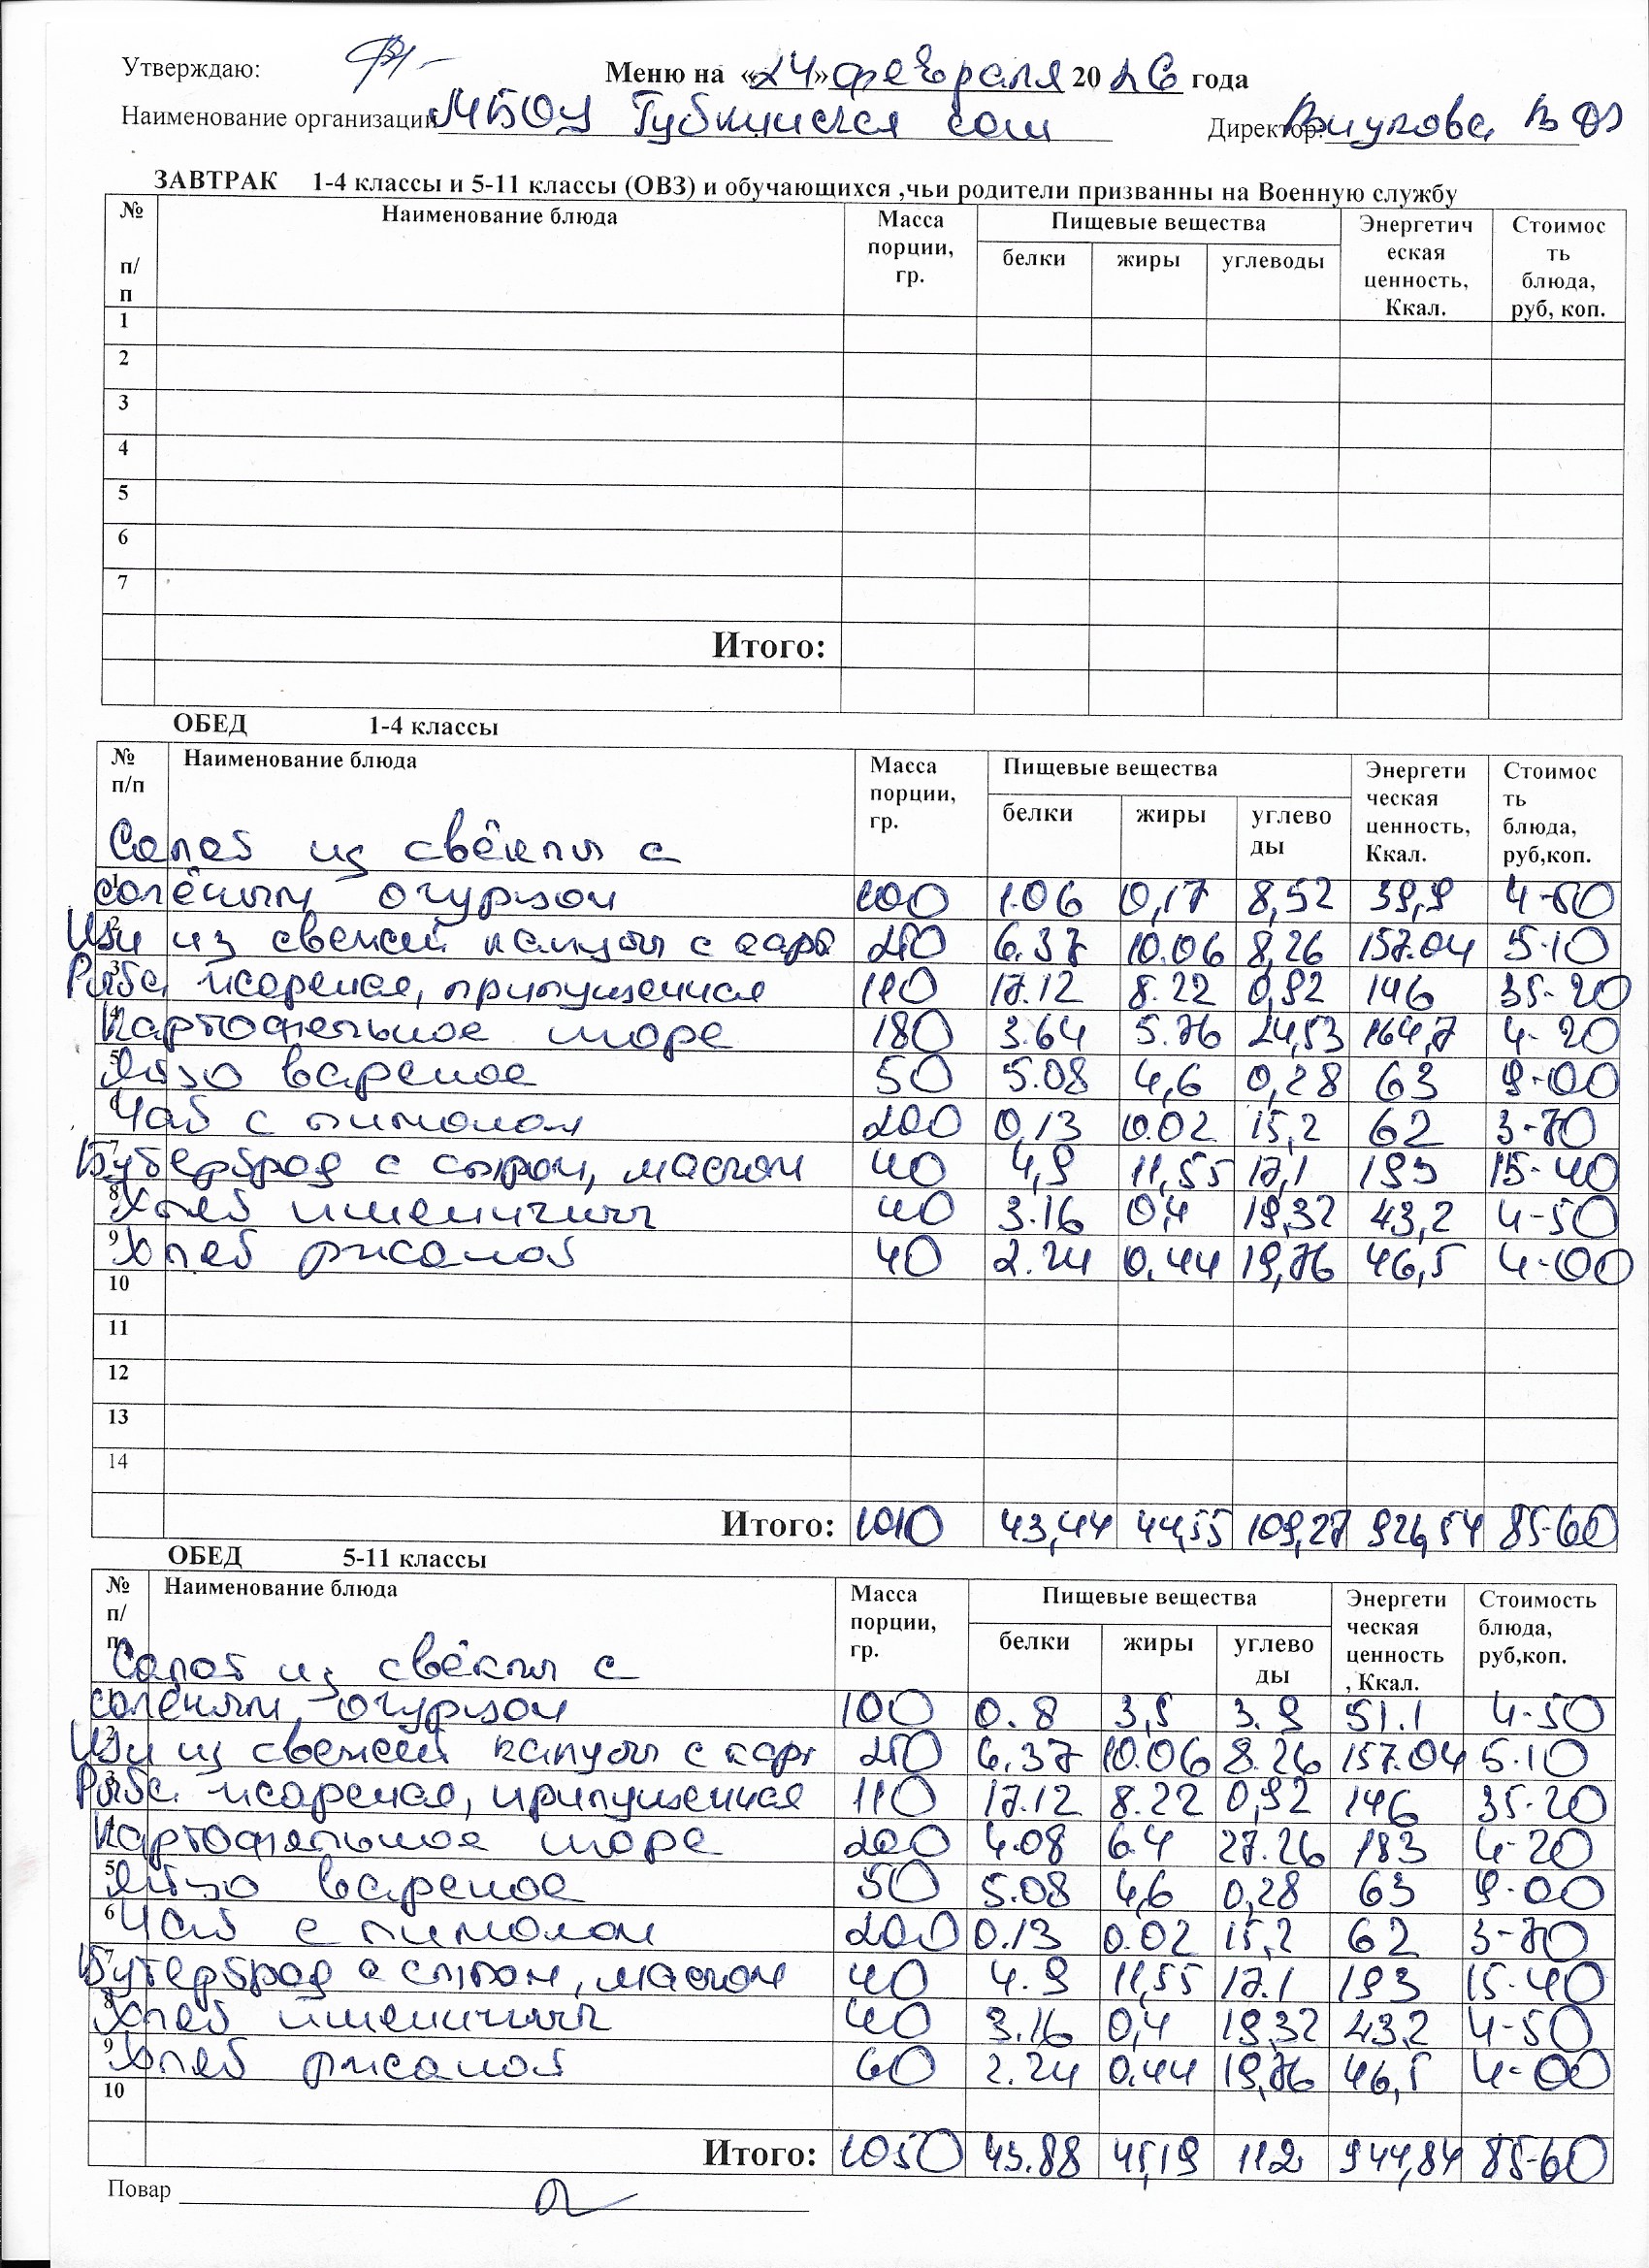 Утверждаю:
Меню на «24» февраля 2026 года
Наименование организации МБОУ Губкинская сош Директор: В Ф
ЗАВТРАК 1-4 классы и 5-11 классы (ОВЗ) и обучающихся ,чьи родители призванны на Военную службу
№ п/п Наименование блюда Масса порции, гр. Пищевые вещества белки жиры углеводы Энергетическая ценность, Ккал. Стоимость блюда, руб, коп.
1
2
3
4
5
6
7
Итого:
ОБЕД 1-4 классы
№ п/п Наименование блюда Масса порции, гр. Пищевые вещества белки жиры углеводы Энергетическая ценность, Ккал. Стоимость блюда, руб,коп.
Салат из свёклы с
1 солёным огурцом 100 1.06 0,17 8,52 39,9 4-50
2 Щи из свежей капусты с карт 250 6.37 10.06 8,26 157.04 5-10
3 Рыба жареная, припущенная 110 17.12 8.22 0,92 146 35-20
4 Картофельное пюре 180 3.64 5.76 24,53 164,7 4-20
5 Яйцо вареное 50 5.08 4,6 0,28 63 9-00
6 Чай с лимоном 200 0,13 0.02 15,2 62 3-70
7 Бутерброд с сыром, маслом 40 4,9 11,55 17,1 193 15-40
8 Хлеб пшеничный 40 3.16 0,4 19,32 43,2 4-50
9 Хлеб ржаной 40 2.24 0.44 19,76 46,5 4-00
10
11
12
13
14
Итого: 1010 43,44 44,55 109,27 926,54 85-60
ОБЕД 5-11 классы
№ п/п Наименование блюда Масса порции, гр. Пищевые вещества белки жиры углеводы Энергетическая ценность, Ккал. Стоимость блюда, руб,коп.
Салат из свёклы с
солёным огурцом 100 0.8 3,5 3.9 51.1 4-50
2 Щи из свежей капусты с карт 250 6,37 10.06 8.26 157.04 5-10
3 Рыба жареная, припущенная 110 17.12 8.22 0,92 146 35-20
4 Картофельное пюре 200 4.08 6.4 27.26 183 4-20
5 Яйцо вареное 50 5.08 4,6 0,28 63 9-00
6 Чай с лимоном 200 0.13 0.02 15,2 62 3-70
7 Бутерброд с сыром, маслом 40 4.9 11,55 17.1 193 15-40
8 Хлеб пшеничный 40 3.16 0,4 19,32 43,2 4-50
9 Хлеб ржаной 60 2.24 0.44 19,76 46,5 4-00
10
Итого: 1050 43.88 45,19 112 944,84 85-60
Повар